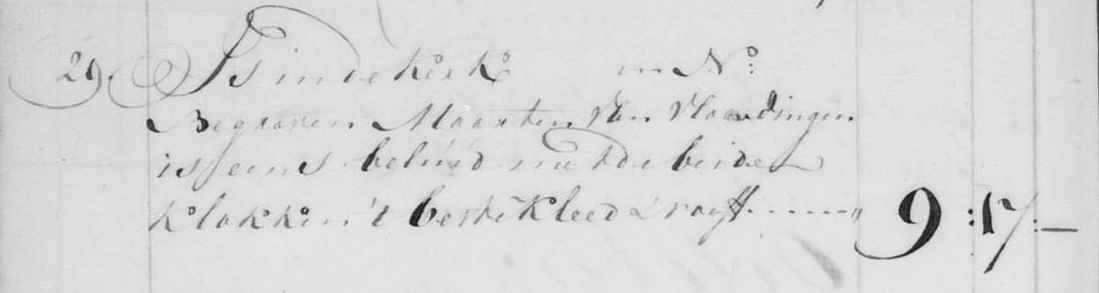 29. Is in de Kerk in No:
Begraaven Maarten Van Vlaardingen
is eens beluid met de beide
Klokken 't beste Kleed & roeff...... 9:17:—